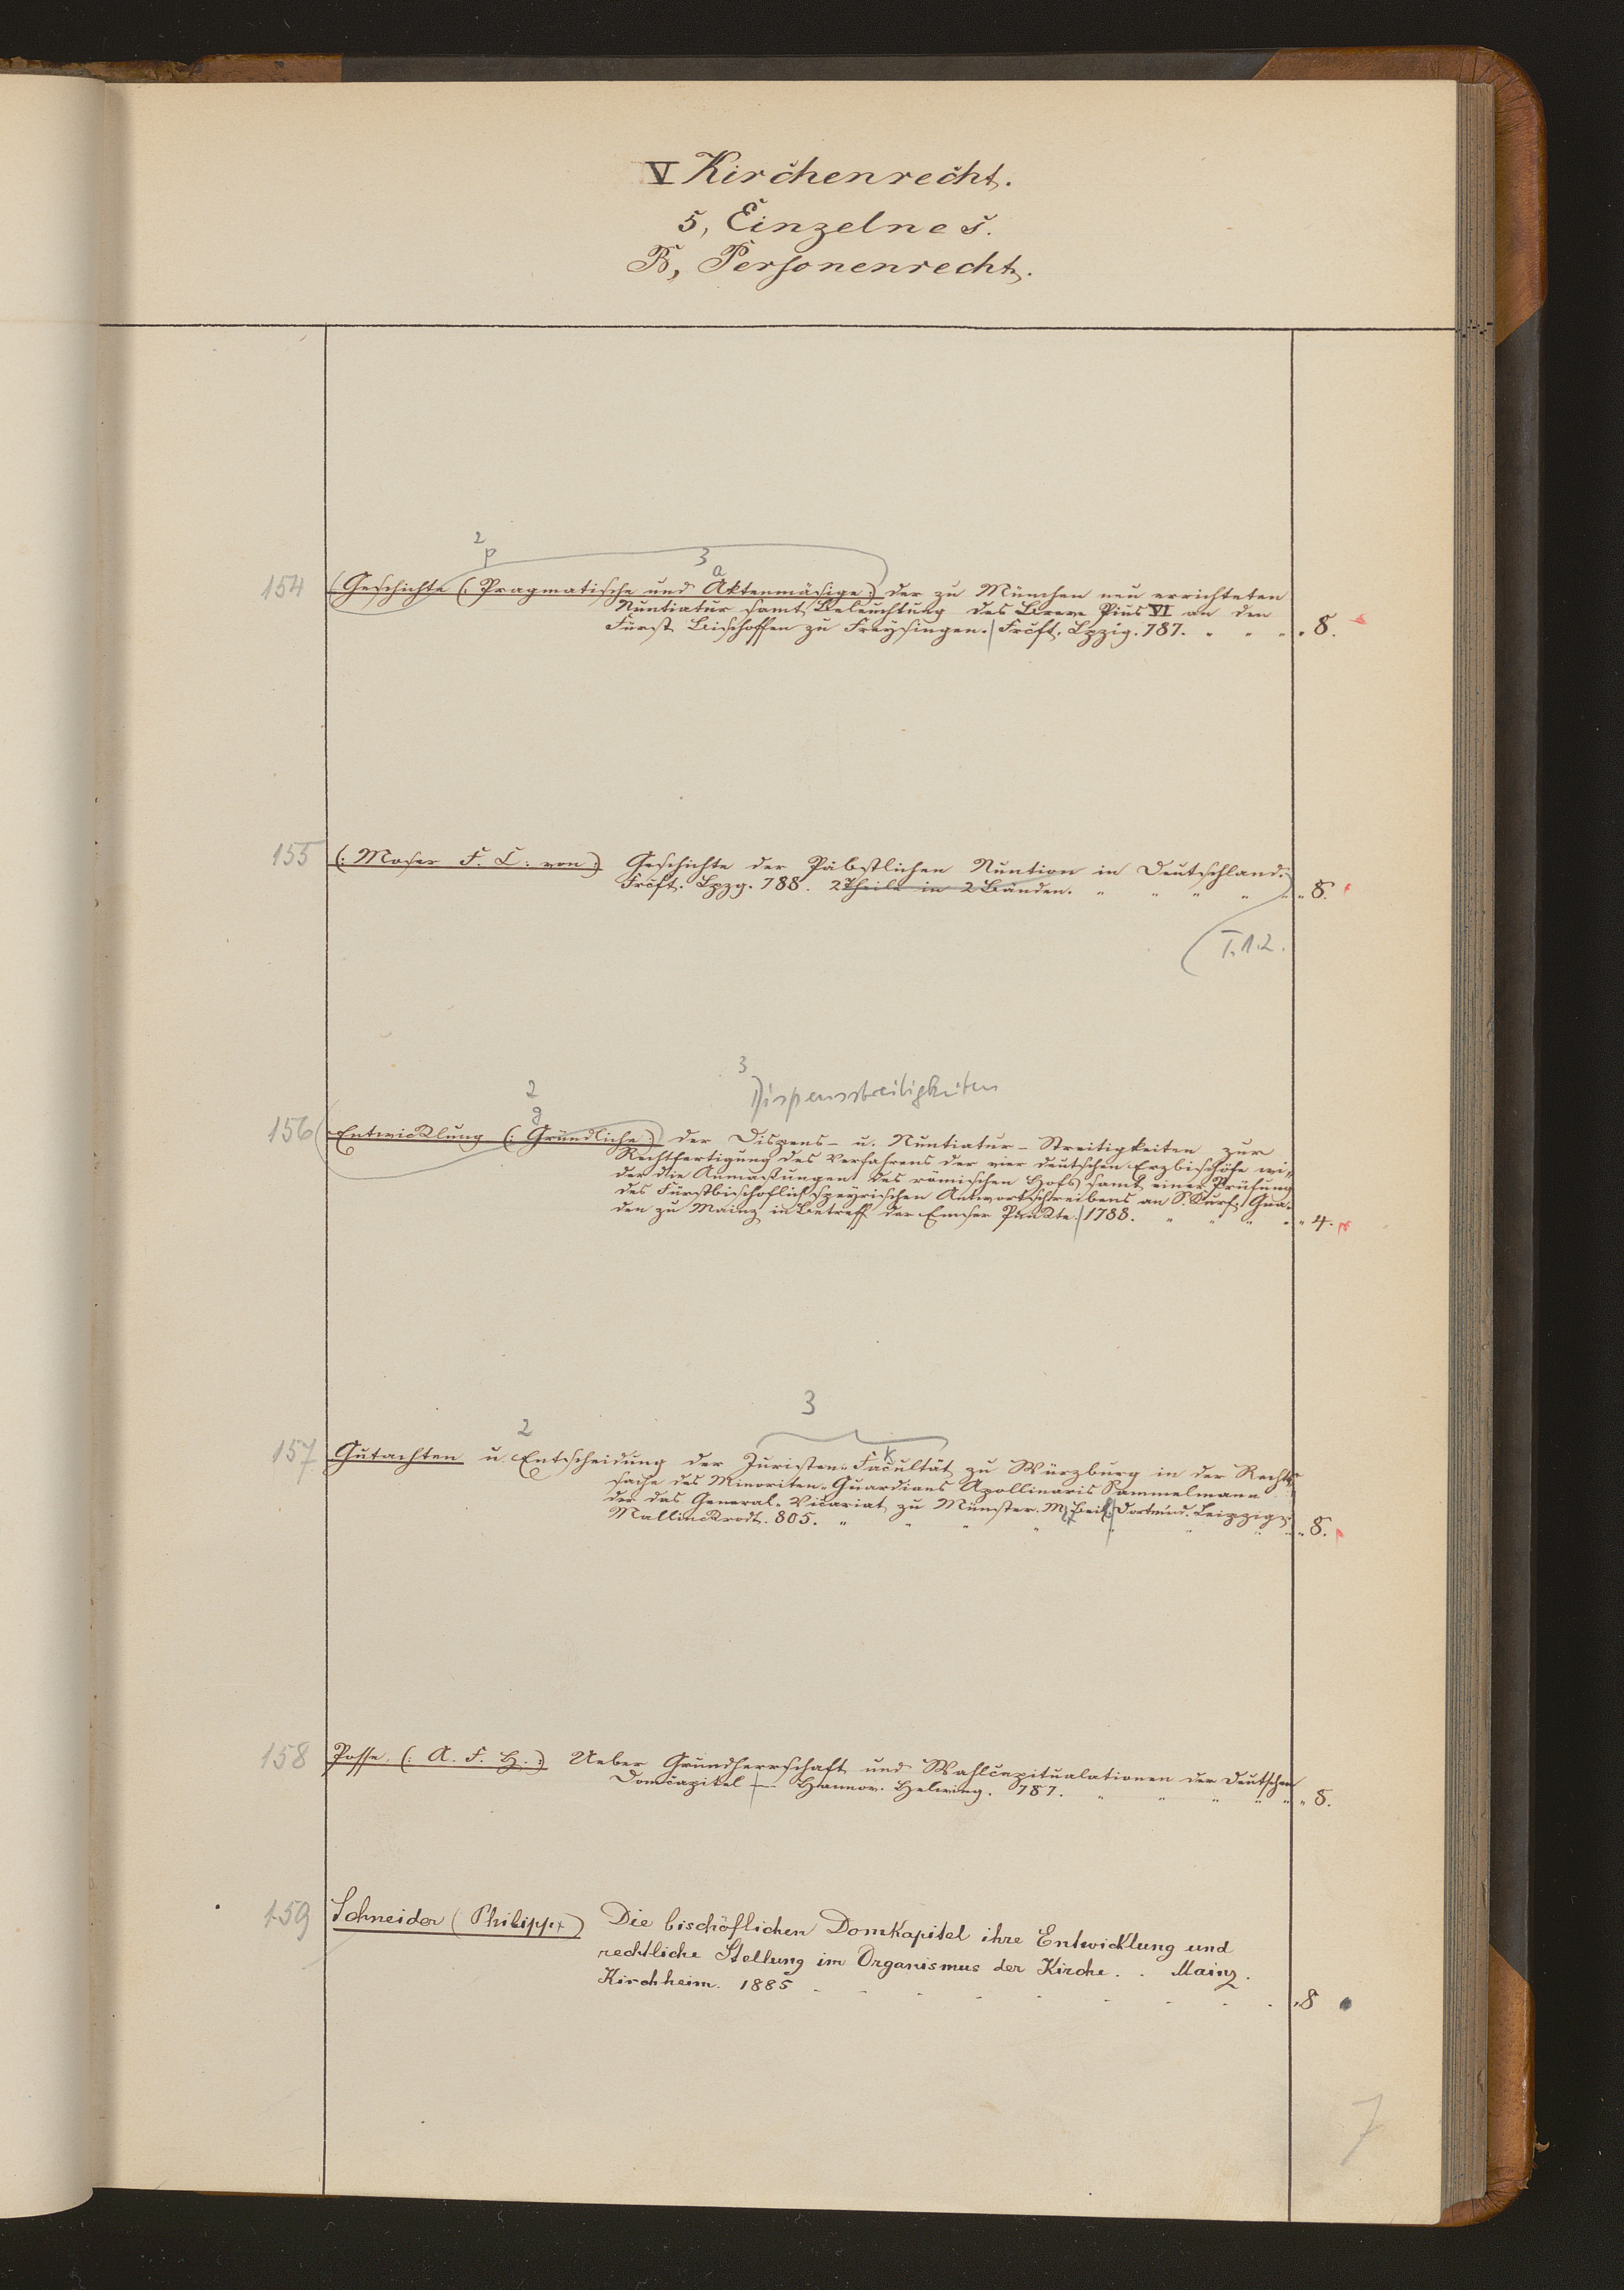 V Kirchenrecht.
5, Einzelnes.
B, Personenrecht.
2
p
3
a
154 (Geschichte (: Pragmatische und Aktenmäsige :) der zu München neu errichteten
Nuntiatur samt Beleuchtung des Breve Pius VI an den
Fürst Bischoffen zu Freysingen. Frcft. Lpzig. 787. " " " " 8.
155 (: Moser F. C: von :) Geschichte der Päbstlichen Nuntien in Deutschland.
Frcft. Lpzg. 788. 2 Theile in 2 Bänden. " " " " " " 8.
T. 1.2.
3
Dispensstreitigkeiten
2
g
156 Entwicklung (: Gründliche :) der Dispens- u. Nuntiatur-Streitigkeiten zur
Rechtfertigung des Verfahrens der vier deutschen Erzbischöfe wi-
der die Anmassungen des römischen Hofs samt einer Prüfung
des Fürstbischöflich speyrischen Antwortschreibens an S. Kurf. Gna-
den zu Mainz in Betreff der Emser Punkte. 1788. " " " " " 4.
3
2
k
157 Gutachten u. Entscheidung der Juristen-Facultät zu Würzburg in der Rechts
sache des Minoriten-Guardians Apollinaris Sammelmann
der das General-Vicariat zu Münster. M. Beil. Dortmund. Leipzig.
Mallinckrodt. 805. " " " " " " " " 8.
158 Posse, (: A. F. H. :) Ueber Grundherrschaft und Wahlcapitualationen der Deutschen
Domcapitel — Hannov. Helwing. 787. " " " " " " 8.
159 Schneider (Philipp) Die bischöflichen Domkapitel ihre Entwicklung und
rechtliche Stellung im Organismus der Kirche. . Mainz.
Kirchheim. 1885 - - - - - - - - - " 8
7